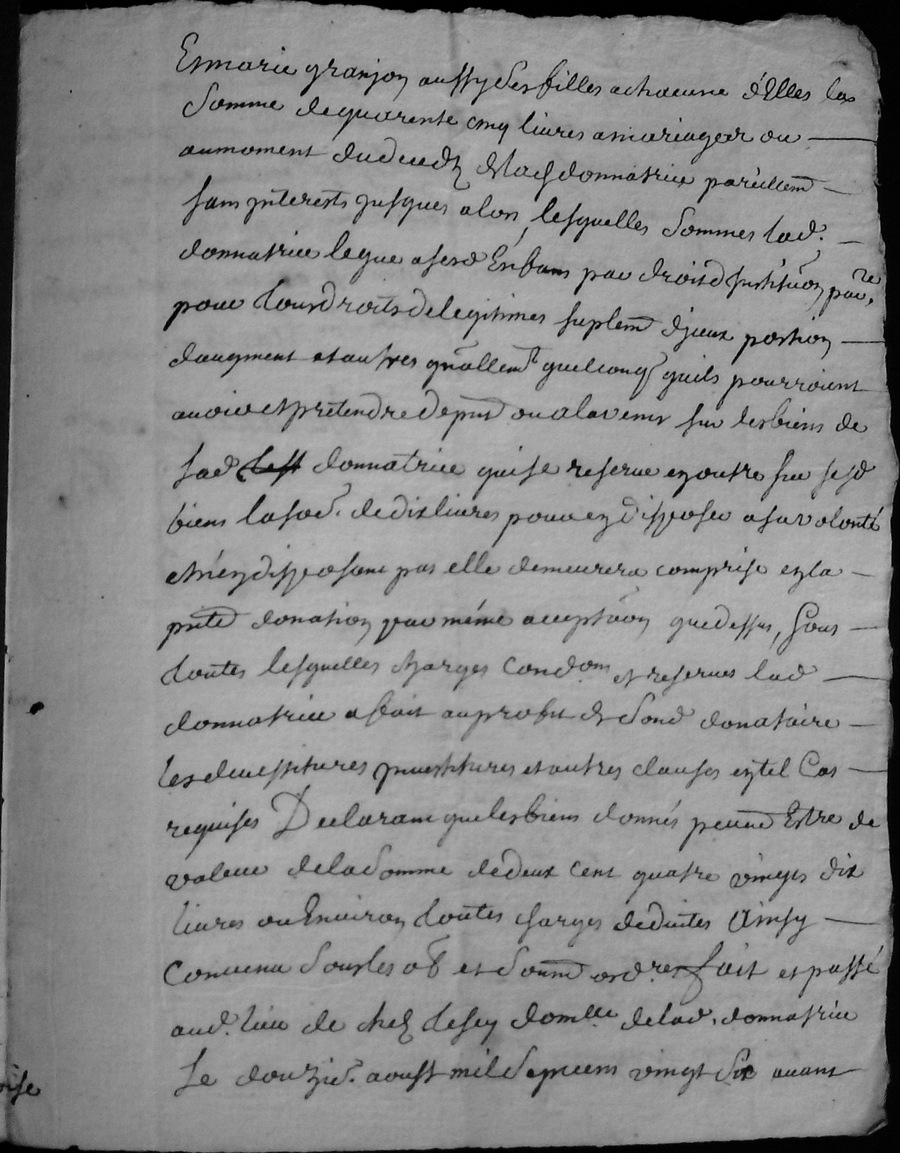 Et marie granjon aussy ses filles a chacune d'Elles la
Somme de quarente cinq livres a mariager ou
au moment du deceds de lad donnatrice pareillemt
sans jnterests jusques alors, lesquelles Sommes lad.
donnatrice legue a sesd Enfans par droit d'jnstituon parre
pour tous droits de legitimes suplemt d'jceux portion
daugment et autres gnallemt quelconq quils pourroient
avoir et pretendre de pnt ou a lavenir sur les biens de
lad donnatrice qui se reserve en outre sur sesd
biens la sod. de dix livres pour en disposer a sa volonté
et n'en disposant pas elle demeurera comprise en la
pnte donation par même acceptaon que dessus, Sous
toutes lesquelles charges condons et reserves lad
donnatrice a fait au profit de Sond donataire
les devestitures jnvestitures et autres clauses en tel Cas
requises Declarant que les biens donnés peuvt Estre de
valeur de la Somme de deux cent quatre vingts dix
livres ou Environ toutes charges deduites Ainsy
Convenu Sous les ob et Soumt ordres fait et passé
aud. lieu de chez domlle de lad. donnatrice
Le douzie. aoust mil Sept cens vingt Six avant